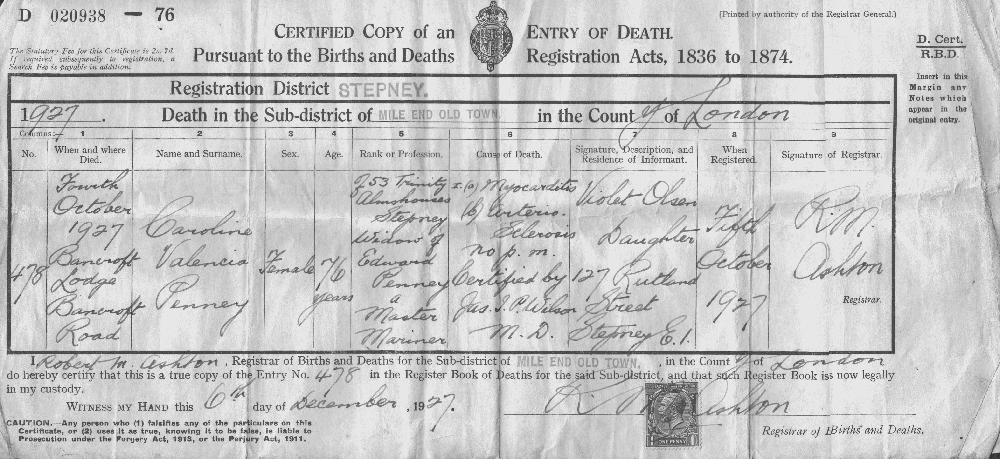 D 020938 — 76
[Printed by authority of the Registrar General.]
CERTIFIED COPY of an ENTRY OF DEATH.
Pursuant to the Births and Deaths Registration Acts, 1836 to 1874.
The Statutory Fee for this Certificate is 2s. 7d.
If required subsequently to registration, a
Search Fee is payable in addition.
D. Cert.
R.B.D.
Insert in this
Margin any
Notes which
appear in the
original entry.
Registration District STEPNEY.
1927. Death in the Sub-district of MILE END OLD TOWN in the County of London
Columns:— 1 2 3 4 5 6 7 8 9
No. When and where Died. Name and Surname. Sex. Age. Rank or Profession. Cause of Death. Signature, Description, and Residence of Informant. When Registered. Signature of Registrar.
478
Fourth
October
1927
Bancroft
Lodge
Bancroft
Road
Caroline
Valencia
Penney
Female
76
years
of 53 Trinity
Almshouses
Stepney
Widow of
Edward
Penney
a
Master
Mariner
I.(a) Myocarditis
(b) Arterio.
Sclerosis
no p.m.
Certified by
Jas. S. P. Wilson
M.D.
Violet Olsen
Daughter
127 Rutland
Street
Stepney E.1.
Fifth
October
1927
R.M.
Ashton
Registrar.
I, Robert M. Ashton, Registrar of Births and Deaths for the Sub-district of MILE END OLD TOWN, in the County of London
do hereby certify that this is a true copy of the Entry No. 478 in the Register Book of Deaths for the said Sub-district, and that such Register Book is now legally
in my custody.
WITNESS MY HAND this 6th day of December, 1927.
R. M. Ashton
CAUTION.—Any person who (1) falsifies any of the particulars on this
Certificate, or (2) uses it as true, knowing it to be false, is liable to
Prosecution under the Forgery Act, 1913, or the Perjury Act, 1911.
ONE PENNY
Registrar of Births and Deaths.